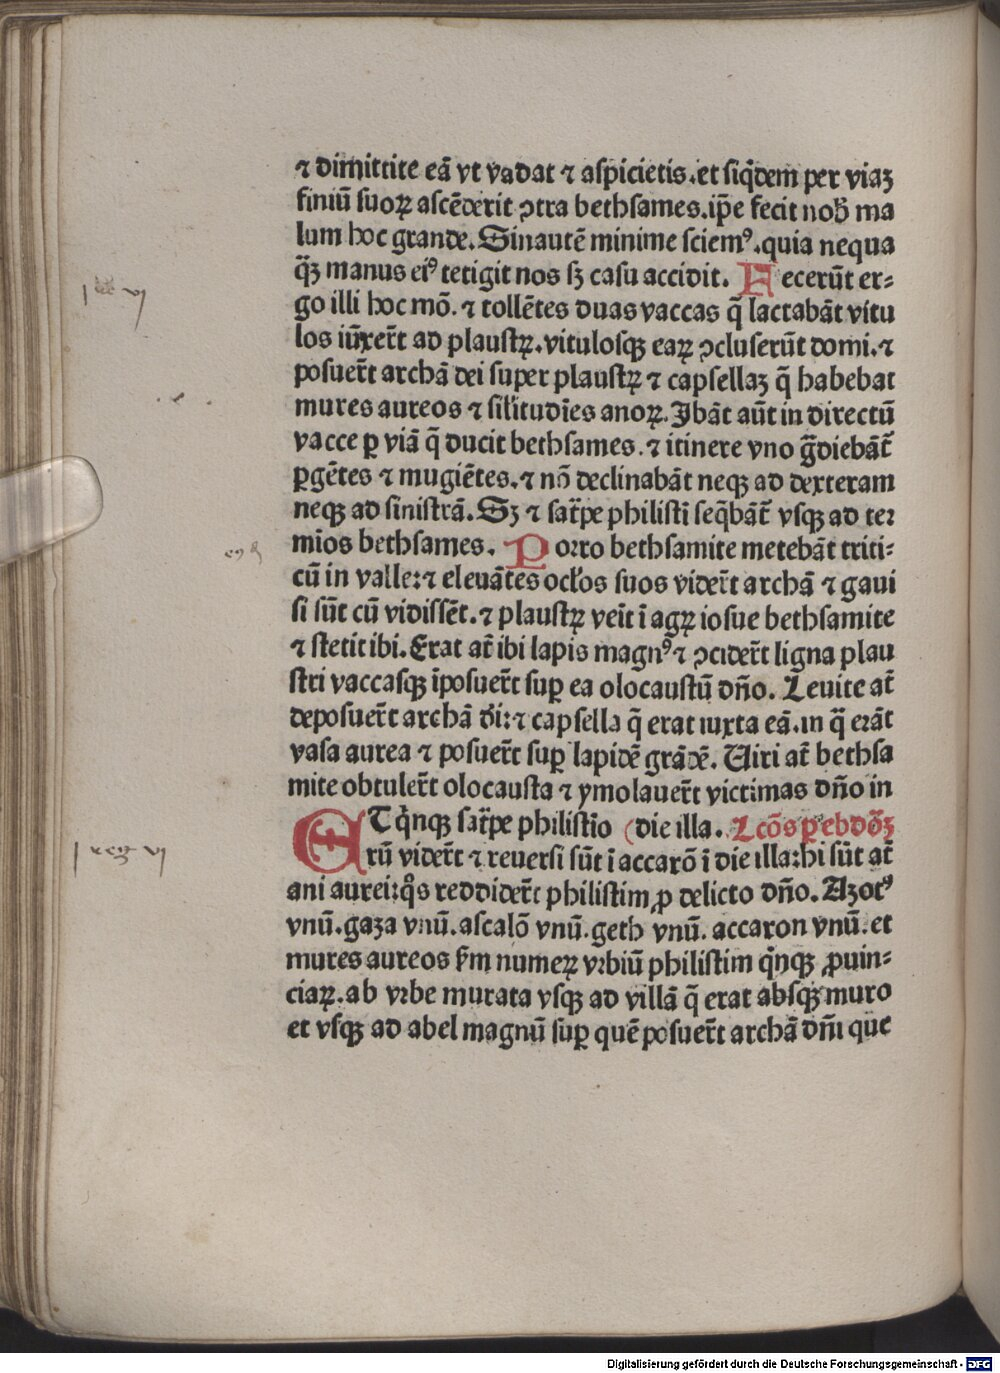 ⁊ dimittite eā vt vadat ⁊ aspicietis. et siq̄dem per viaꝫ
finiū suoꝝ ascēderit ↄtra bethsames. ip̄e fecit nob̄ ma
lum hoc grande. Sinautē minime sciemꝰ. quia nequa
q̄ꝫ manus eiꝰ tetigit nos sꝫ casu accidit. Fecerūt er⸗
go illi hoc mō. ⁊ tollētes duas vaccas q̄ lactabāt vitu
los iūxer̄t ad plaustꝝ. vitulosqꝫ eaꝝ ↄcluserūt domi. ⁊
posuer̄t archā dei super plaustꝝ ⁊ capsellaꝫ q̄ habebat
mures aureos ⁊ sil̄itudīes anoꝝ. Ibāt aūt in directū
vacce ꝑ viā q̄ ducit bethsames. ⁊ itinere vno ḡdiebāt̄
ꝑgētes ⁊ mugiētes. ⁊ nō declinabāt neqꝫ ad dexteram
neqꝫ ad sinistrā. Sꝫ ⁊ sat̄pe philistī seq̄bāt̄ vsqꝫ ad ter
mīos bethsames. Porro bethsamite metebāt triti⸗
cū in valle: ⁊ eleuātes ocl̄os suos vider̄t archā ⁊ gaui
si sūt cū vidissēt. ⁊ plaustꝝ veīt ī agꝝ iosue bethsamite
⁊ stetit ibi. Erat at̄ ibi lapis magnꝰ ⁊ ↄcider̄t ligna plau
stri vaccasqꝫ īposuer̄t suꝑ ea olocaustū dn̄o. Leuite at̄
deposuer̄t archā di̅: ⁊ capsella q̄ erat iuxta eā. in q̄ erāt
vasa aurea ⁊ posuer̄t suꝑ lapidē grādē. Uiri at̄ bethsa
mite obtuler̄t olocausta ⁊ ymolauer̄t victimas dn̄o in
ET q̇nqꝫ sat̄pe philistio (die illa. Lcōs ꝑ ebdōꝫ
rū vider̄t ⁊ reuersi sūt ī accarō ī die illa: hi sūt at̄
ani aurei: q̊s reddider̄t philistim ꝓ delicto dn̄o. Azotꝰ
vnū. gaza vnū. ascalō vnū. geth vnū. accaron vnū. et
mures aureos ẜm numeꝝ vrbiū philistim q̇nqꝫ ꝓuin⸗
ciaꝝ. ab vrbe murata vsqꝫ ad villā q̄ erat absqꝫ muro
et vsqꝫ ad abel magnū suꝑ quē posuer̄t archā dn̄i que
Digitalisierung gefördert durch die Deutsche Forschungsgemeinschaft - DFG